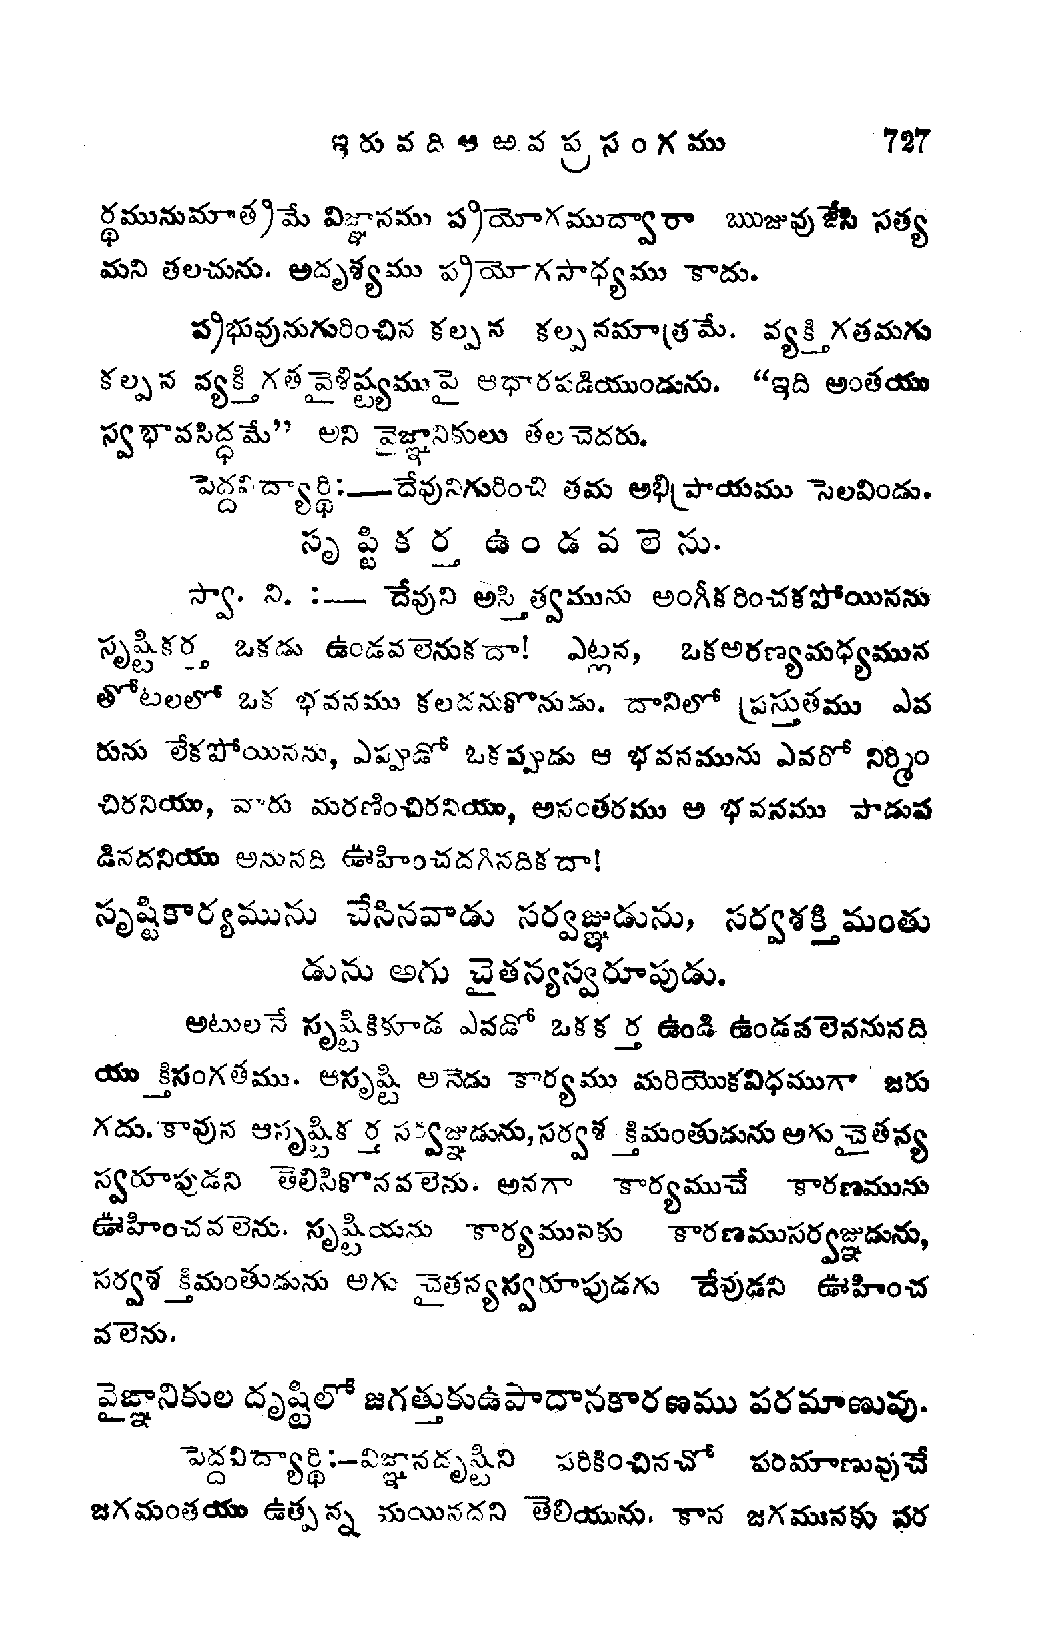 ఇరువదిఆఱవప్రసంగము 727
ర్థమునుమాత్రమే విజ్ఞానము ప్రయోగముద్వారా ఋజువుజేసి సత్య
మని తలచును. అదృశ్యము ప్రయోగసాధ్యము కాదు.
ప్రభువునుగురించిన కల్పన కల్పనమాత్రమే. వ్యక్తిగతమగు
కల్పన వ్యక్తిగతవైశిష్ట్యముపై ఆధారపడియుండును. "ఇది అంతయు
స్వభావసిద్ధమే" అని వైజ్ఞానికులు తలచెదరు.
పెద్దవిద్యార్థి:—దేవునిగురించి తమ అభిప్రాయము సెలవిండు.
సృష్టికర్త ఉండవలెను.
స్వా. ని. :— దేవుని అస్తిత్వమును అంగీకరించకపోయినను
సృష్టికర్త ఒకడు ఉండవలెనుకదా! ఎట్లన, ఒకఅరణ్యమధ్యమున
తోటలలో ఒక భవనము కలదనుకొనుడు. దానిలో ప్రస్తుతము ఎవ
రును లేకపోయినను, ఎప్పుడో ఒకప్పుడు ఆ భవనమును ఎవరో నిర్మిం
చిరనియు, వారు మరణించిరనియు, అనంతరము ఆ భవనము పాడుప
డినదనియు అనునది ఊహించదగినదికదా!
సృష్టికార్యమును చేసినవాడు సర్వజ్ఞుడును, సర్వశక్తిమంతు
డును అగు చైతన్యస్వరూపుడు.
అటులనే సృష్టికికూడ ఎవడో ఒకకర్త ఉండి ఉండవలెననునది
యుక్తిసంగతము. ఆసృష్టి అనెడు కార్యము మరియొకవిధముగా జరు
గదు. కావున ఆసృష్టికర్త సర్వజ్ఞుడును, సర్వశక్తిమంతుడును అగు చైతన్య
స్వరూపుడని తెలిసికొనవలెను. అనగా కార్యముచే కారణమును
ఊహించవలెను. సృష్టియను కార్యమునకు కారణముసర్వజ్ఞుడును,
సర్వశక్తిమంతుడును అగు చైతన్యస్వరూపుడగు దేవుడని ఊహించ
వలెను.
వైజ్ఞానికుల దృష్టిలో జగత్తుకుఉపాదానకారణము పరమాణువు.
పెద్దవిద్యార్థి:—విజ్ఞానదృష్టిని పరికించినచో పరిమాణువుచే
జగమంతయు ఉత్పన్న మయినదని తెలియును. కాన జగమునకు పర